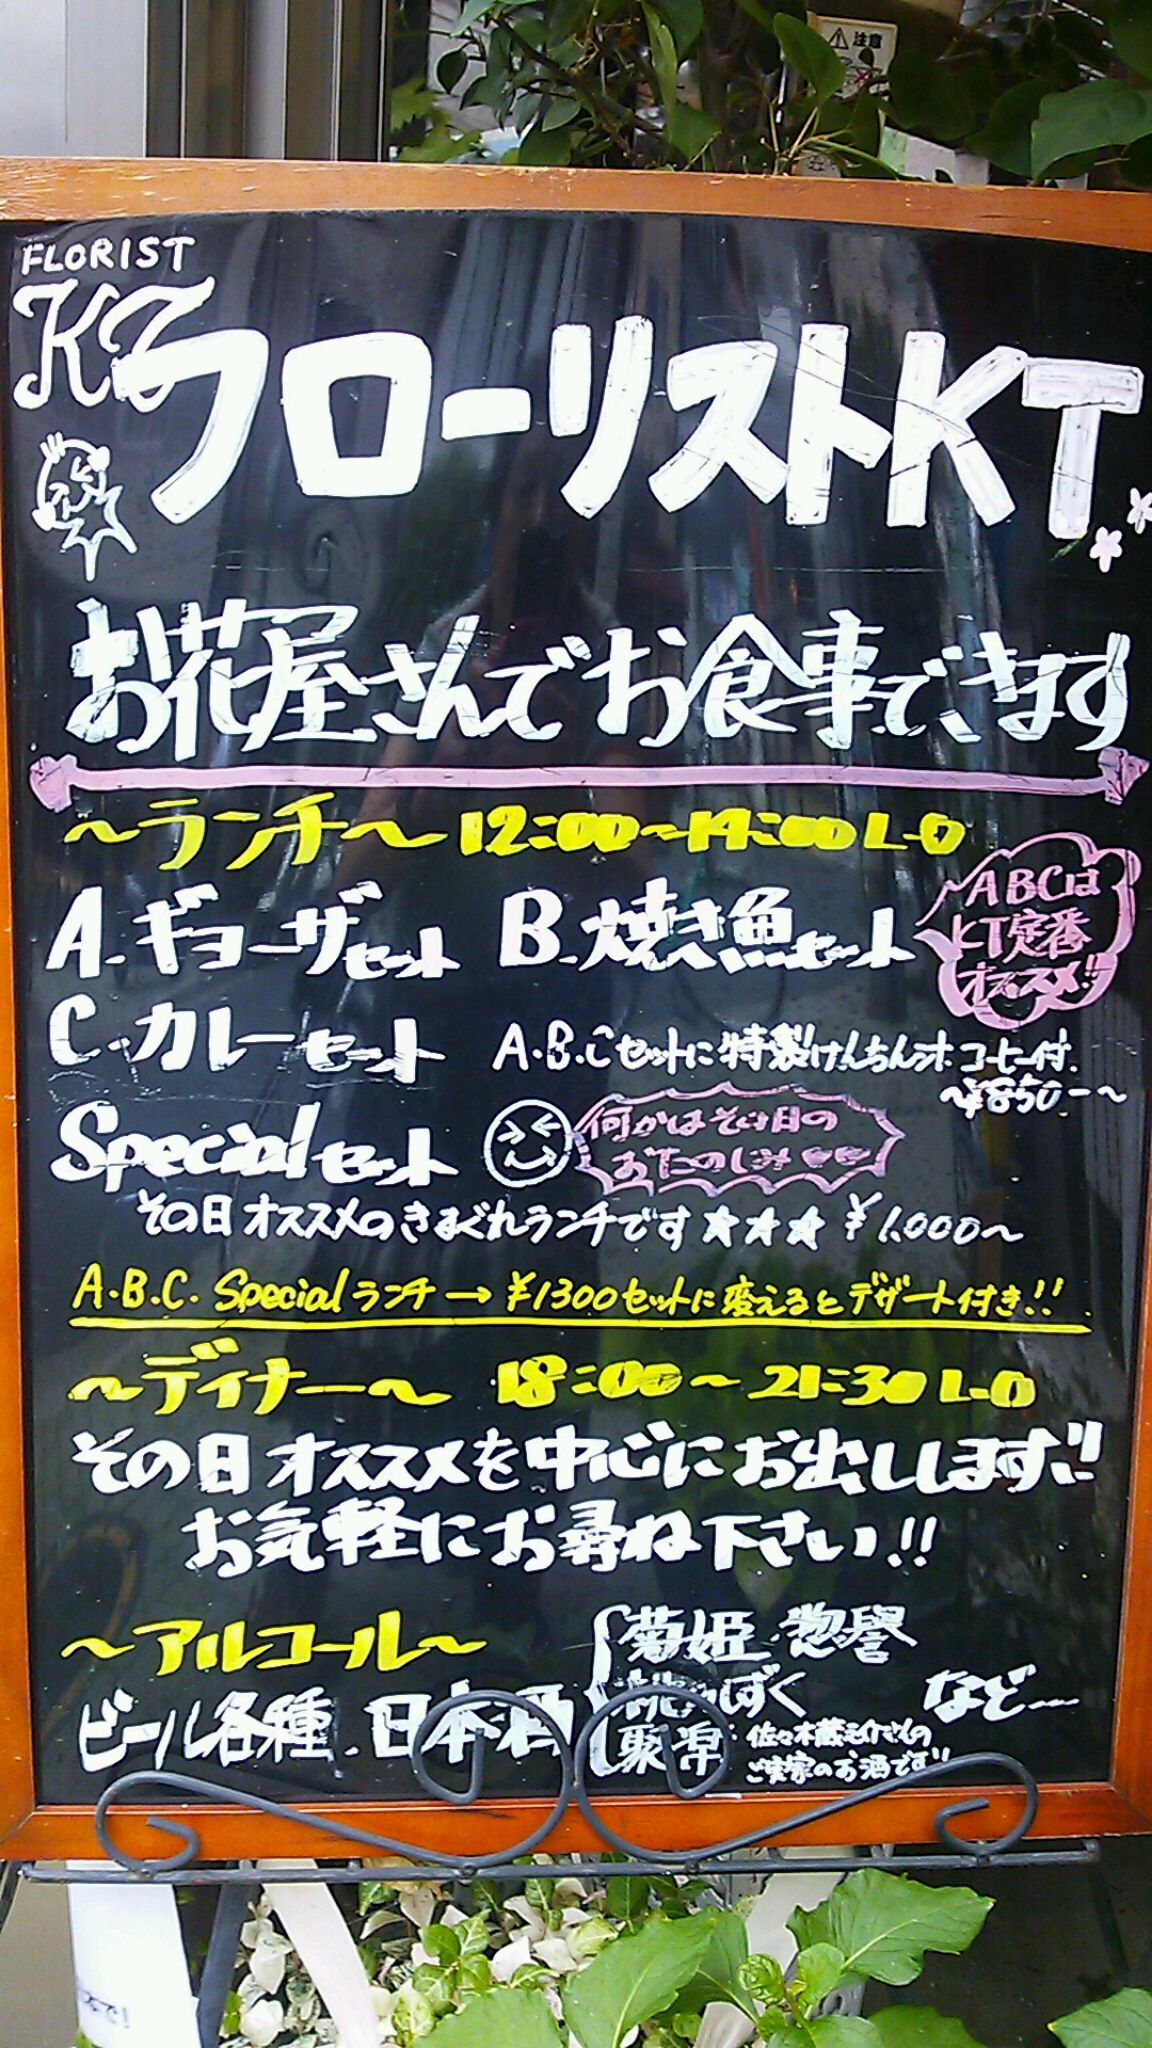 注意
FLORIST
KT
フローリストKT
お花屋さんでお食事できます
～ランチ～ 12:00～14:00 L・O
A.ギョーザセット B.焼き魚セット
ABCは
KT定番
オススメ!!
C.カレーセット A.B.Cセットに特製けんちん汁 コーヒー付
～¥850-～
Specialセット 何かはその日の
おたのしみ
その日オススメのきまぐれランチです☆☆☆ ¥1.000～
A.B.C. Specialランチ→¥1300セットに変えるとデザート付き!!
～ディナー～ 18:00～21:30 L・O
その日オススメを中心にお出しします!!
お気軽にお尋ね下さい!!
～アルコール～ 菊姫・惣誉
ビール各種 日本酒 しずく など
聚楽:佐々木蔵之介さんの
ご実家のお酒です!!